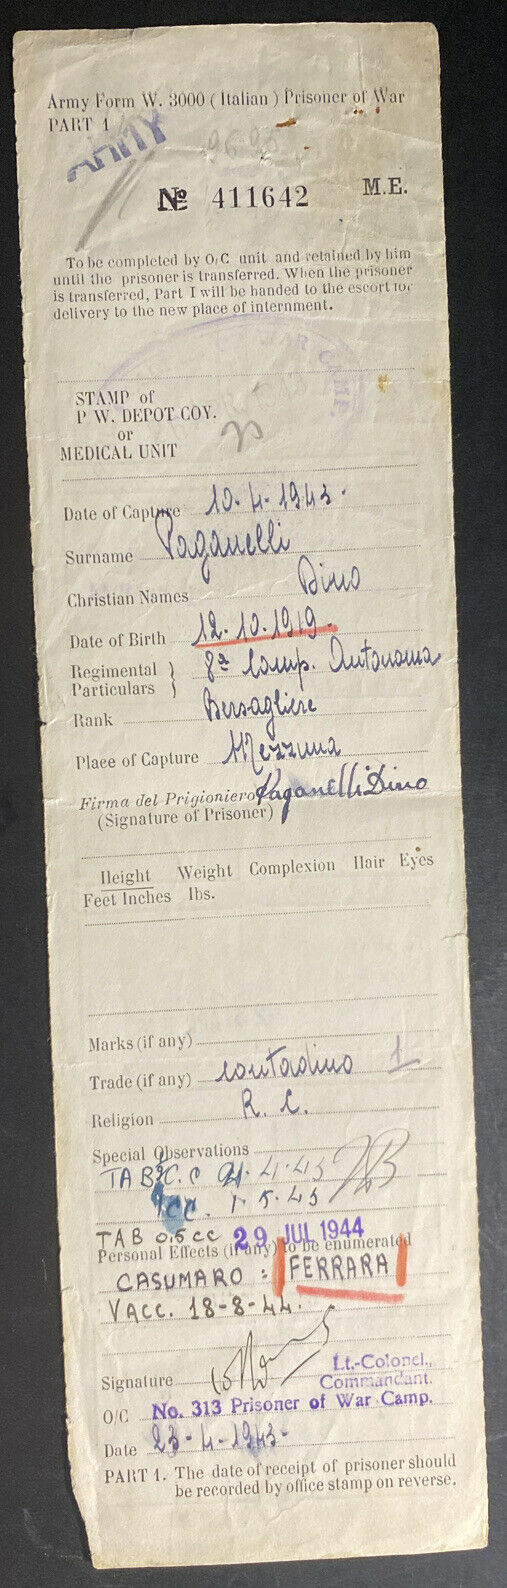 Army Form W. 3000 ( Italian ) Prisoner of War
PART 1
ARMY
№ 411642 M.E.
To be completed by O/C unit and retained by him
until the prisoner is transferred. When the prisoner
is transferred, Part I will be handed to the escort for
delivery to the new place of internment.
WAR CAMP
STAMP of
P. W. DEPOT COY.
or
MEDICAL UNIT
Date of Capture 10-4-1943.
Surname Paganelli
Christian Names Dino
Date of Birth 12-10-1919.
Regimental } 8ª Comp. Autonoma
Particulars }
Rank Bersagliere
Place of Capture Mezzuna
Firma del Prigioniero Paganelli Dino
(Signature of Prisoner)
Height Weight Complexion Hair Eyes
Feet Inches lbs.
Marks (if any)
Trade (if any) contadino 1
Religion R. C.
Special Observations
TAB C.C 4.43
1cc. 1-5-43
TAB 0.5cc 29 JUL 1944
Personal Effects (if any) to be enumerated
CASUMARO : FERRARA
VACC. 18-8-44.
Signature Lt.-Colonel.,
Commandant.
O/C No. 313 Prisoner of War Camp.
Date 23-4-1943-
PART 1. The date of receipt of prisoner should
be recorded by office stamp on reverse.